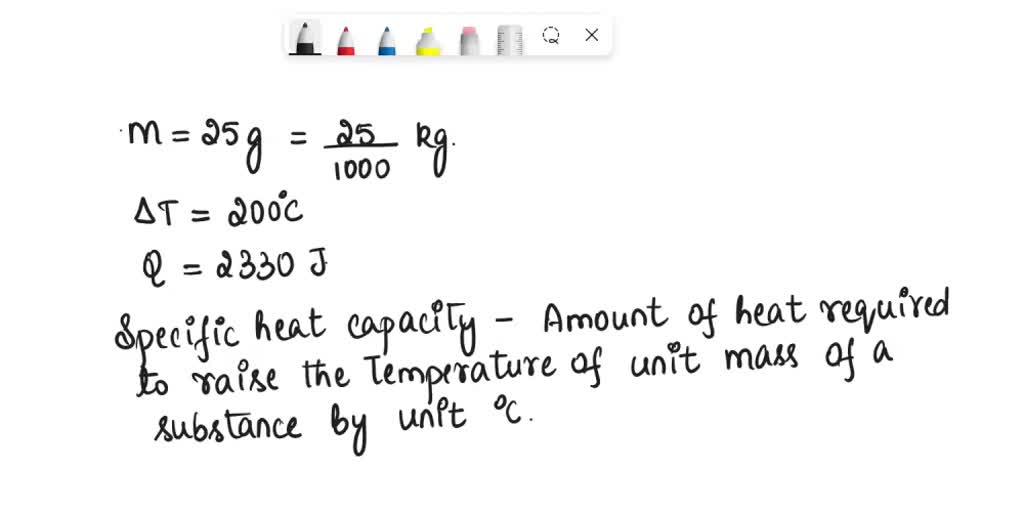 m = 25g = 25/1000 kg.
ΔT = 200°C
Q = 2330 J
Specific heat capacity - Amount of heat required
to raise the Temperature of unit mass of a
substance by unit °C.